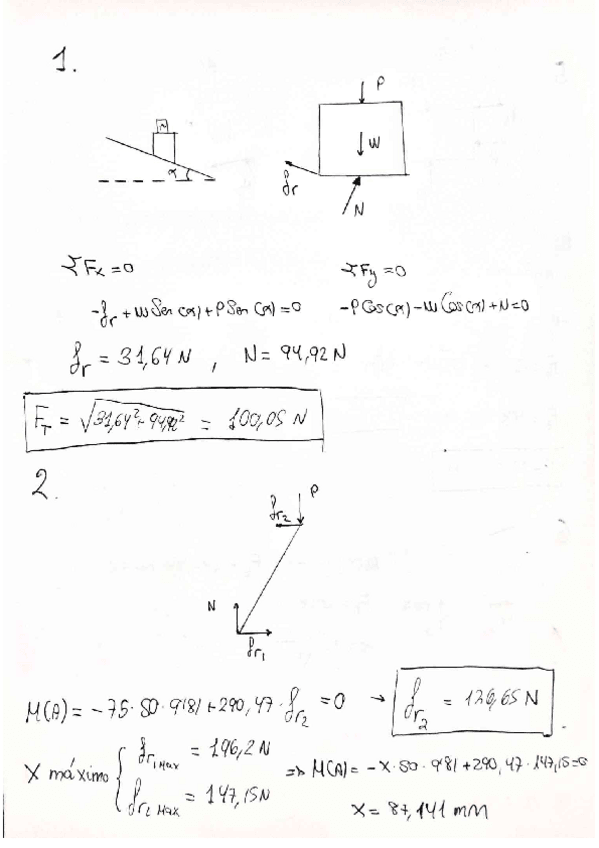 1.
P
M
α
W
fr
N
ΣFx = 0
ΣFy = 0
-fr + W Sen(α) + P Sen(α) = 0
-P Cos(α) - W Cos(α) + N = 0
fr = 31,64 N , N = 94,92 N
F_T = √31,64² + 94,92² = 100,05 N
2.
P
fr2
N
fr1
M(A) = -75·50·9'81 + 290,47·fr2 = 0 → fr2 = 126,65 N
X máximo { fr1 Max = 196,2 N
fr2 Max = 147,15 N
=> M(A) = -X·50·9'81 + 290,47·147,15 = 0
X = 87,141 mm